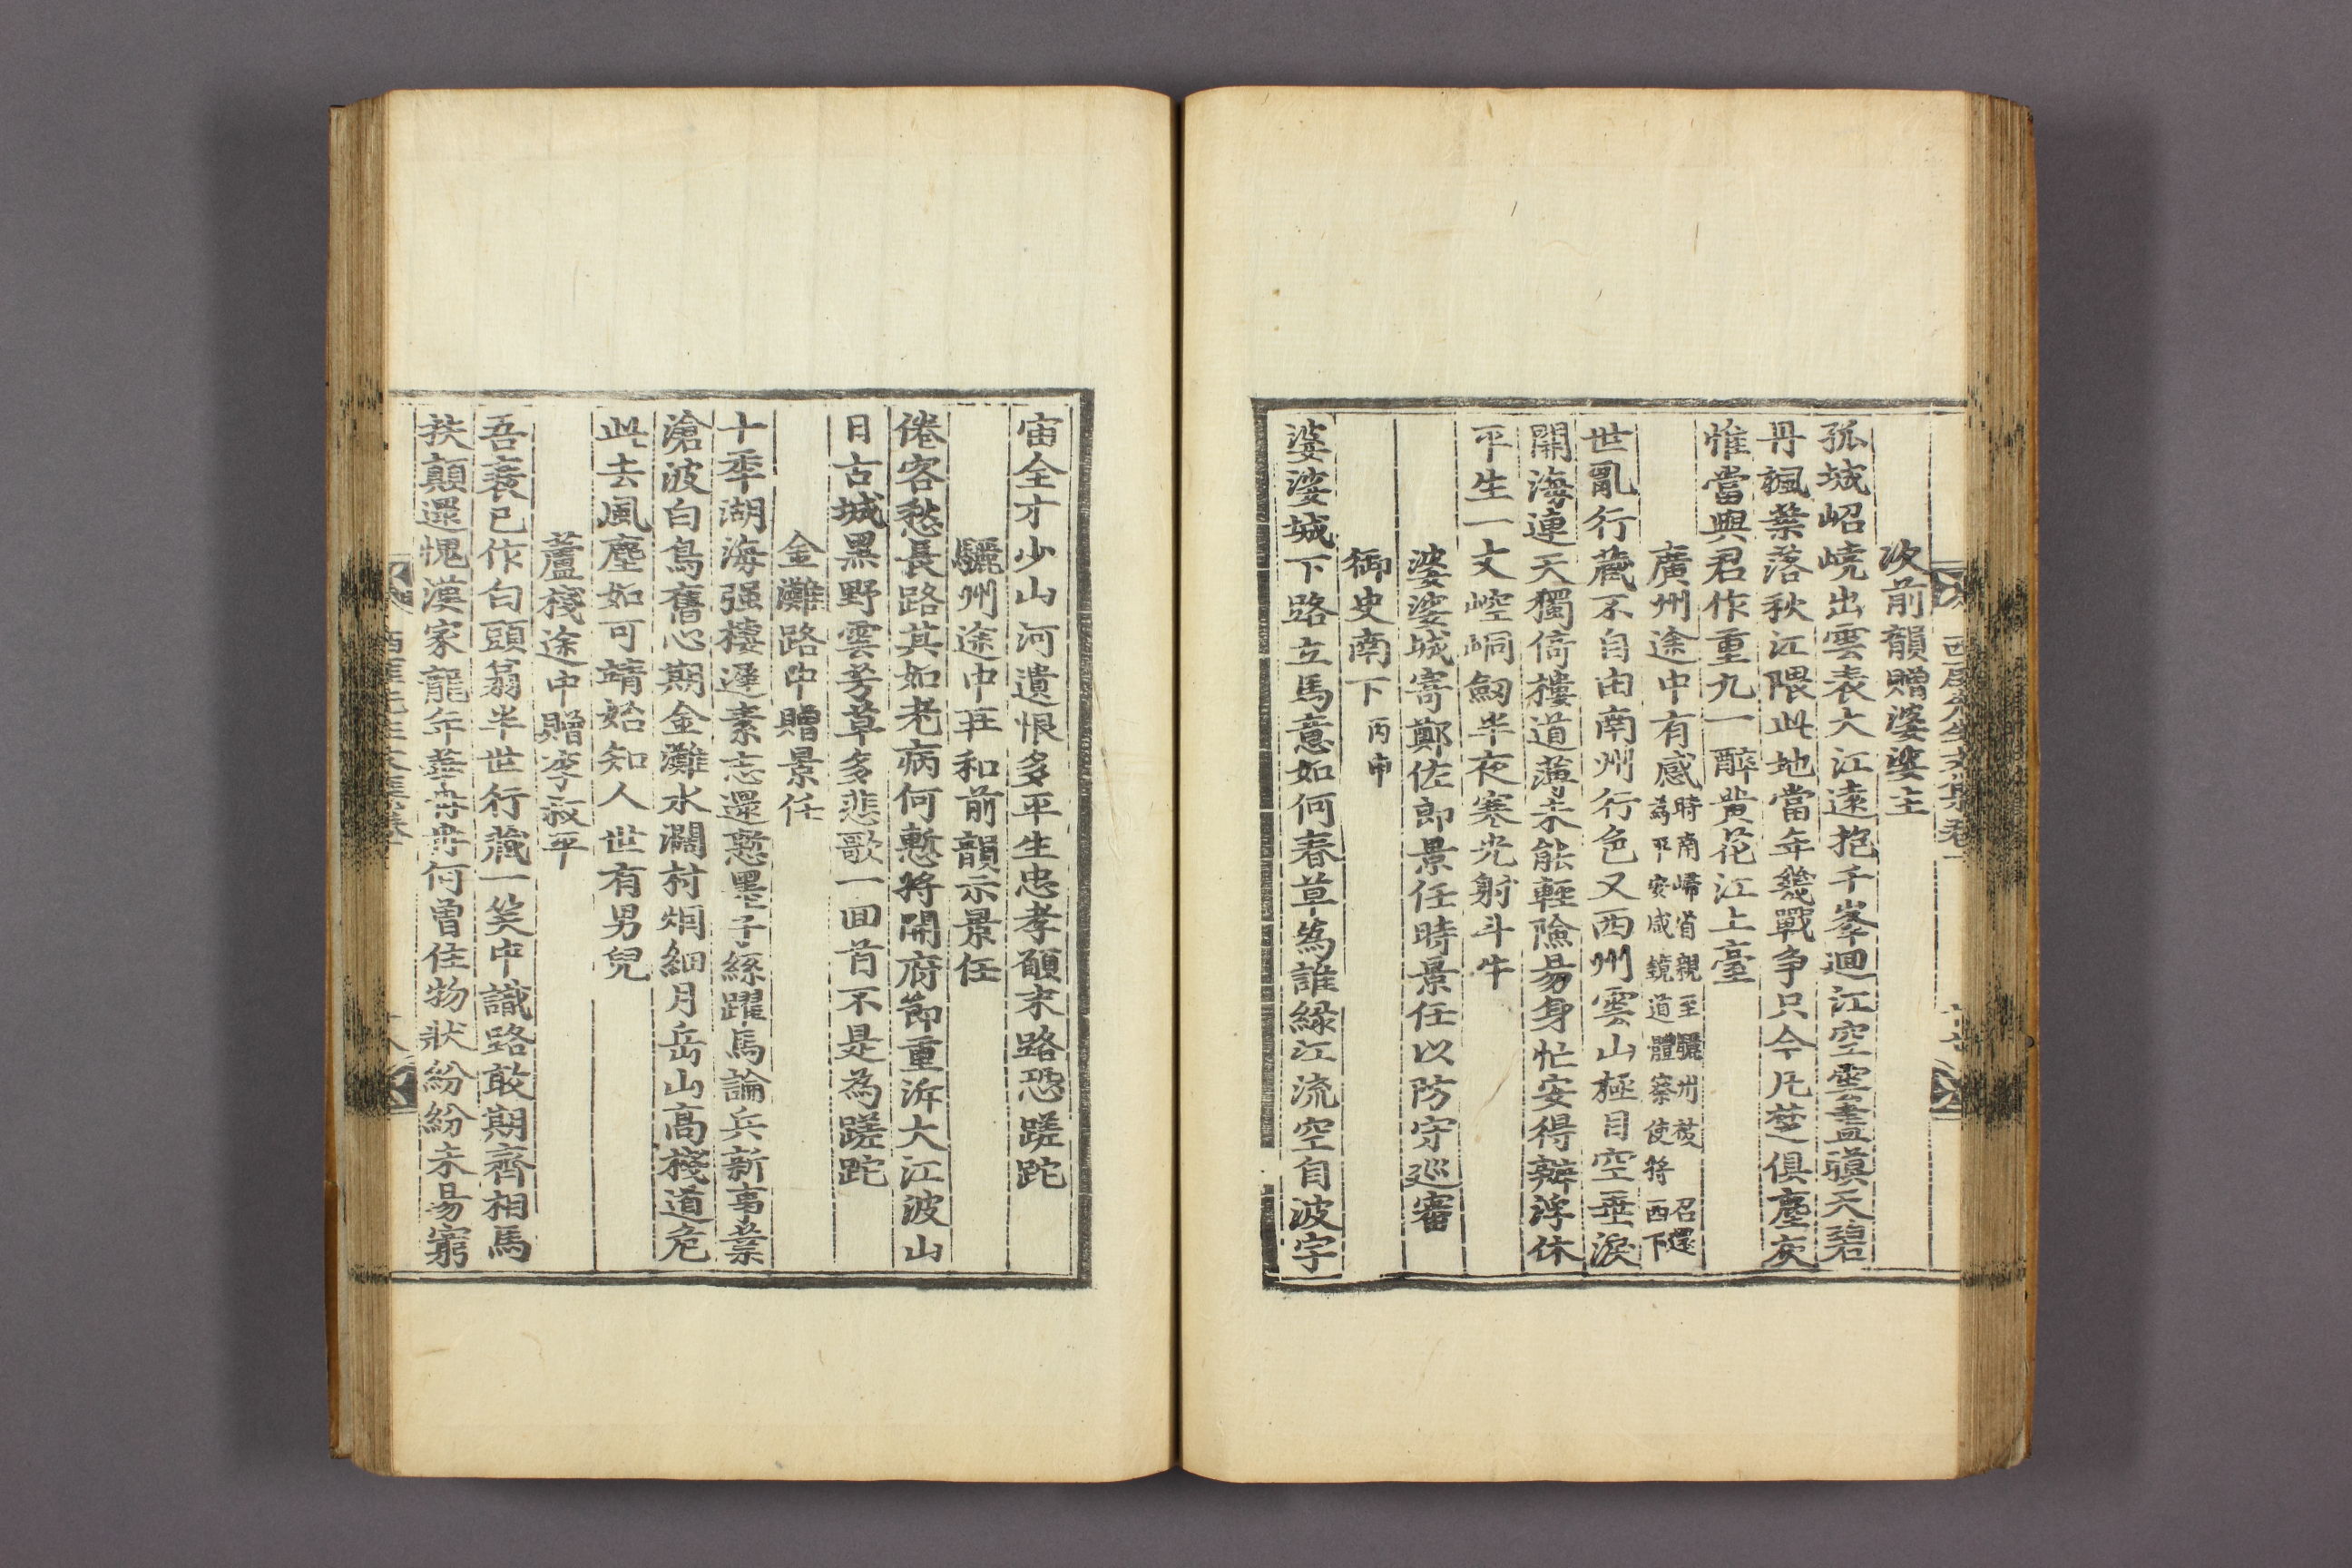 次前韻贈婆娑主
孤城岧嶢出雲表大江遠抱千峯迴江空雲盡漠天碧
丹楓葉落秋江隈此地當年幾戰爭只今凡楚俱塵灰
惟當與君作重九一醉黃花江上臺
廣州途中有感時南歸省親至驪州被 召還
爲平安咸鏡道體察使將西下
世亂行藏不自由南州行色又西州雲山極目空垂淚
關海連天獨倚樓道薄未能輕險易身忙安得辦浮休
平生一丈崆峒劒半夜寒光射斗牛
婆娑城寄鄭佐郎景任時景任以防守巡審
御史南下丙申
婆娑城下路立馬意如何春草爲誰緑江流空自波宇
宙全才少山河遺恨多平生忠孝願末路恐蹉跎
驪州途中再和前韻示景任
倦客愁長路其如老病何慙將開府節重泝大江波山
日古城黑野雲芳草多悲歌一回首不是為蹉跎
金灘路中贈景任
十年湖海强棲遲素志還慙墨子絲躍馬論兵新事業
滄波白鳥舊心期金灘水濶村烟細月岳山高棧道危
此去風塵如可靖始知人世有男兒
蘆棧途中贈李叔平
吾衰已作白頭翁半世行藏一笑中識路敢期齊相馬
扶顛還愧漢家龍年華冉冉何曾住物狀紛紛未易窮